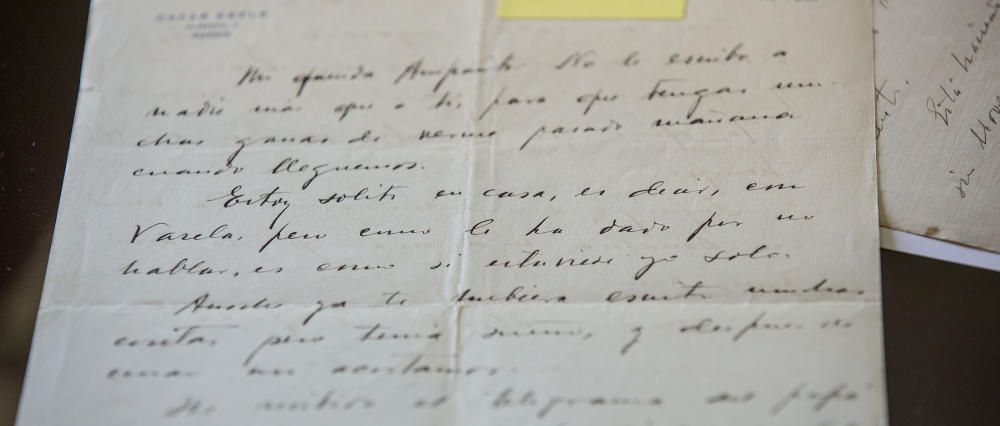 OSCAR ESPLÁ
MADRID
Mi querida Amparito No le escribo a
nadie más que a tí, para que tengas mu-
chas ganas de verme pasado mañana
cuando lleguemos.
Estoy solito en casa, es decir, con
Varela, pero como le ha dado por no
hablar, es como si estuviese yo solo.
Anoche ya te hubiera escrito muchas
cositas pero tenía sueño, y después de
cenar nos acostamos.
He recibido el telegrama de papá
Esta
sin